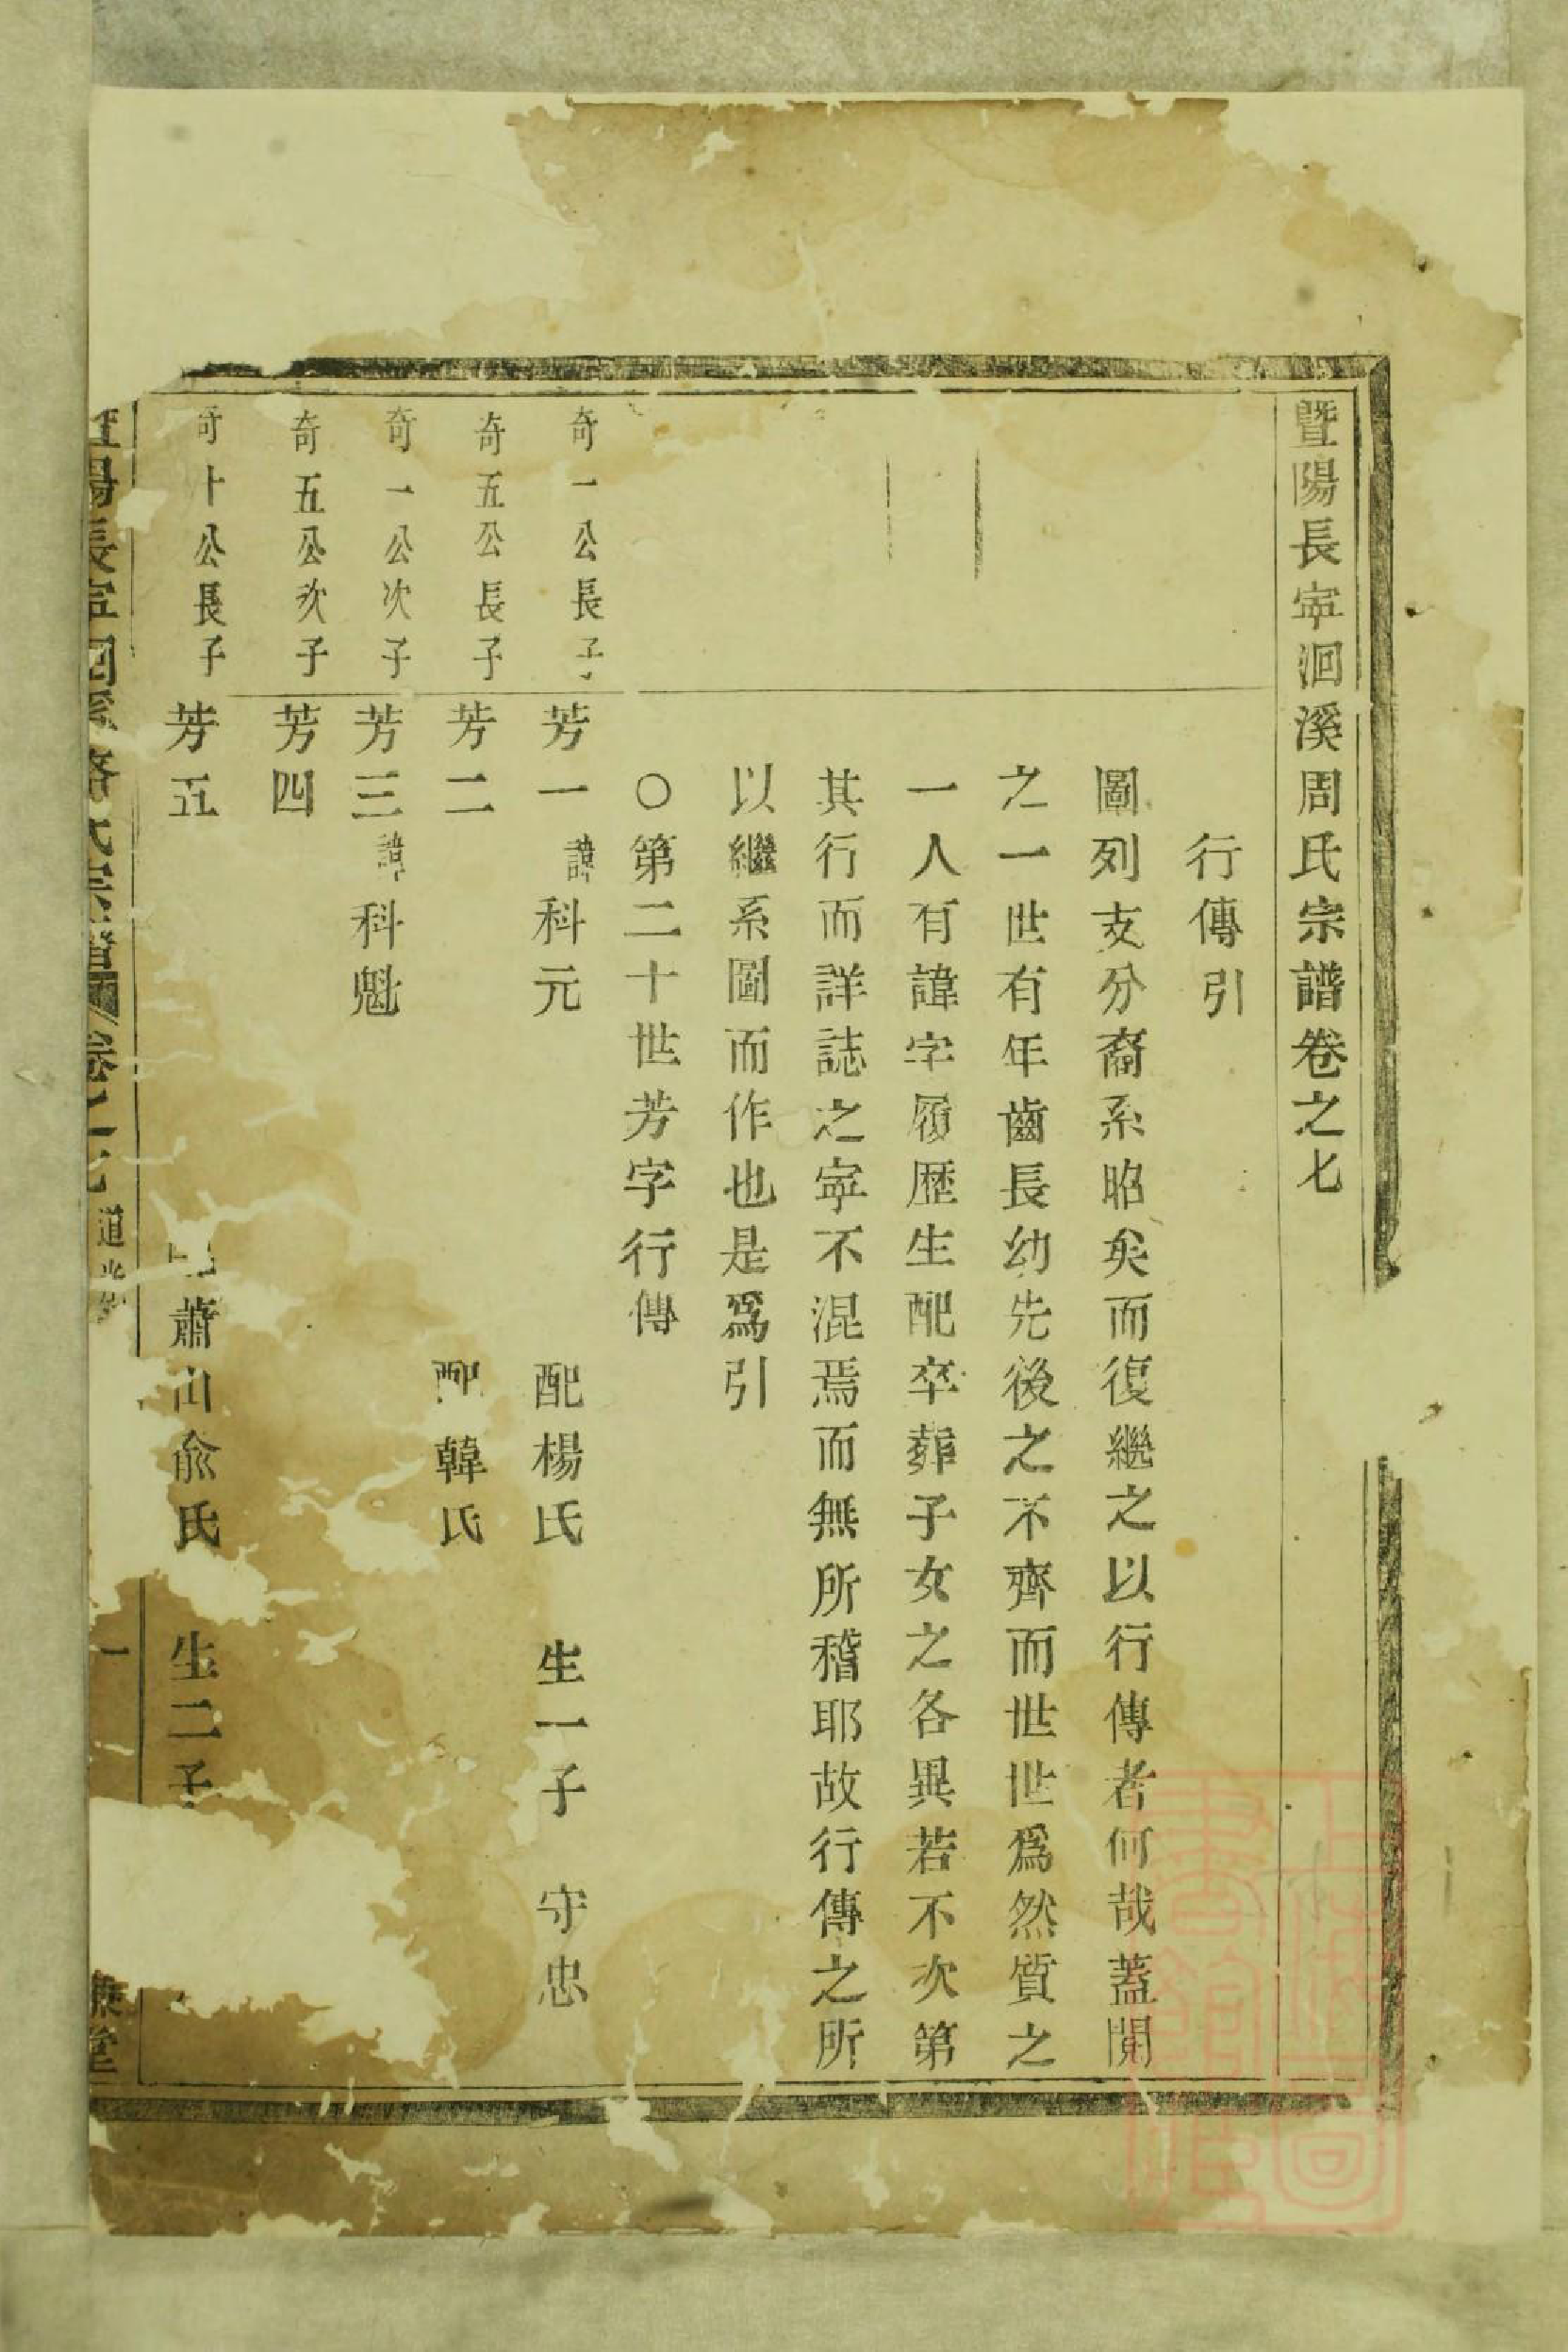 暨陽長寕洄溪周氏宗譜卷之七
行傳引
圖列支分裔系昭矣而復繼之以行傳者何哉蓋閱
之一世有年齒長幼先後之不齊而世世爲然質之
一人有諱字履歷生配卒葬子女之各異若不次第
其行而詳誌之寕不混焉而無所稽耶故行傳之所
以繼系圖而作也是爲引
○第二十世芳字行傳
奇一公長子 芳一 諱科元 配楊氏 生一子 守忠
奇五公長子 芳二 配韓氏
奇一公次子 芳三 諱科魁
奇五公次子 芳四
奇十公長子 芳五 蕭山俞氏 生二子
陽長寕洄溪 氏宗譜 卷之七 道光 一 堂
上海圖書館藏